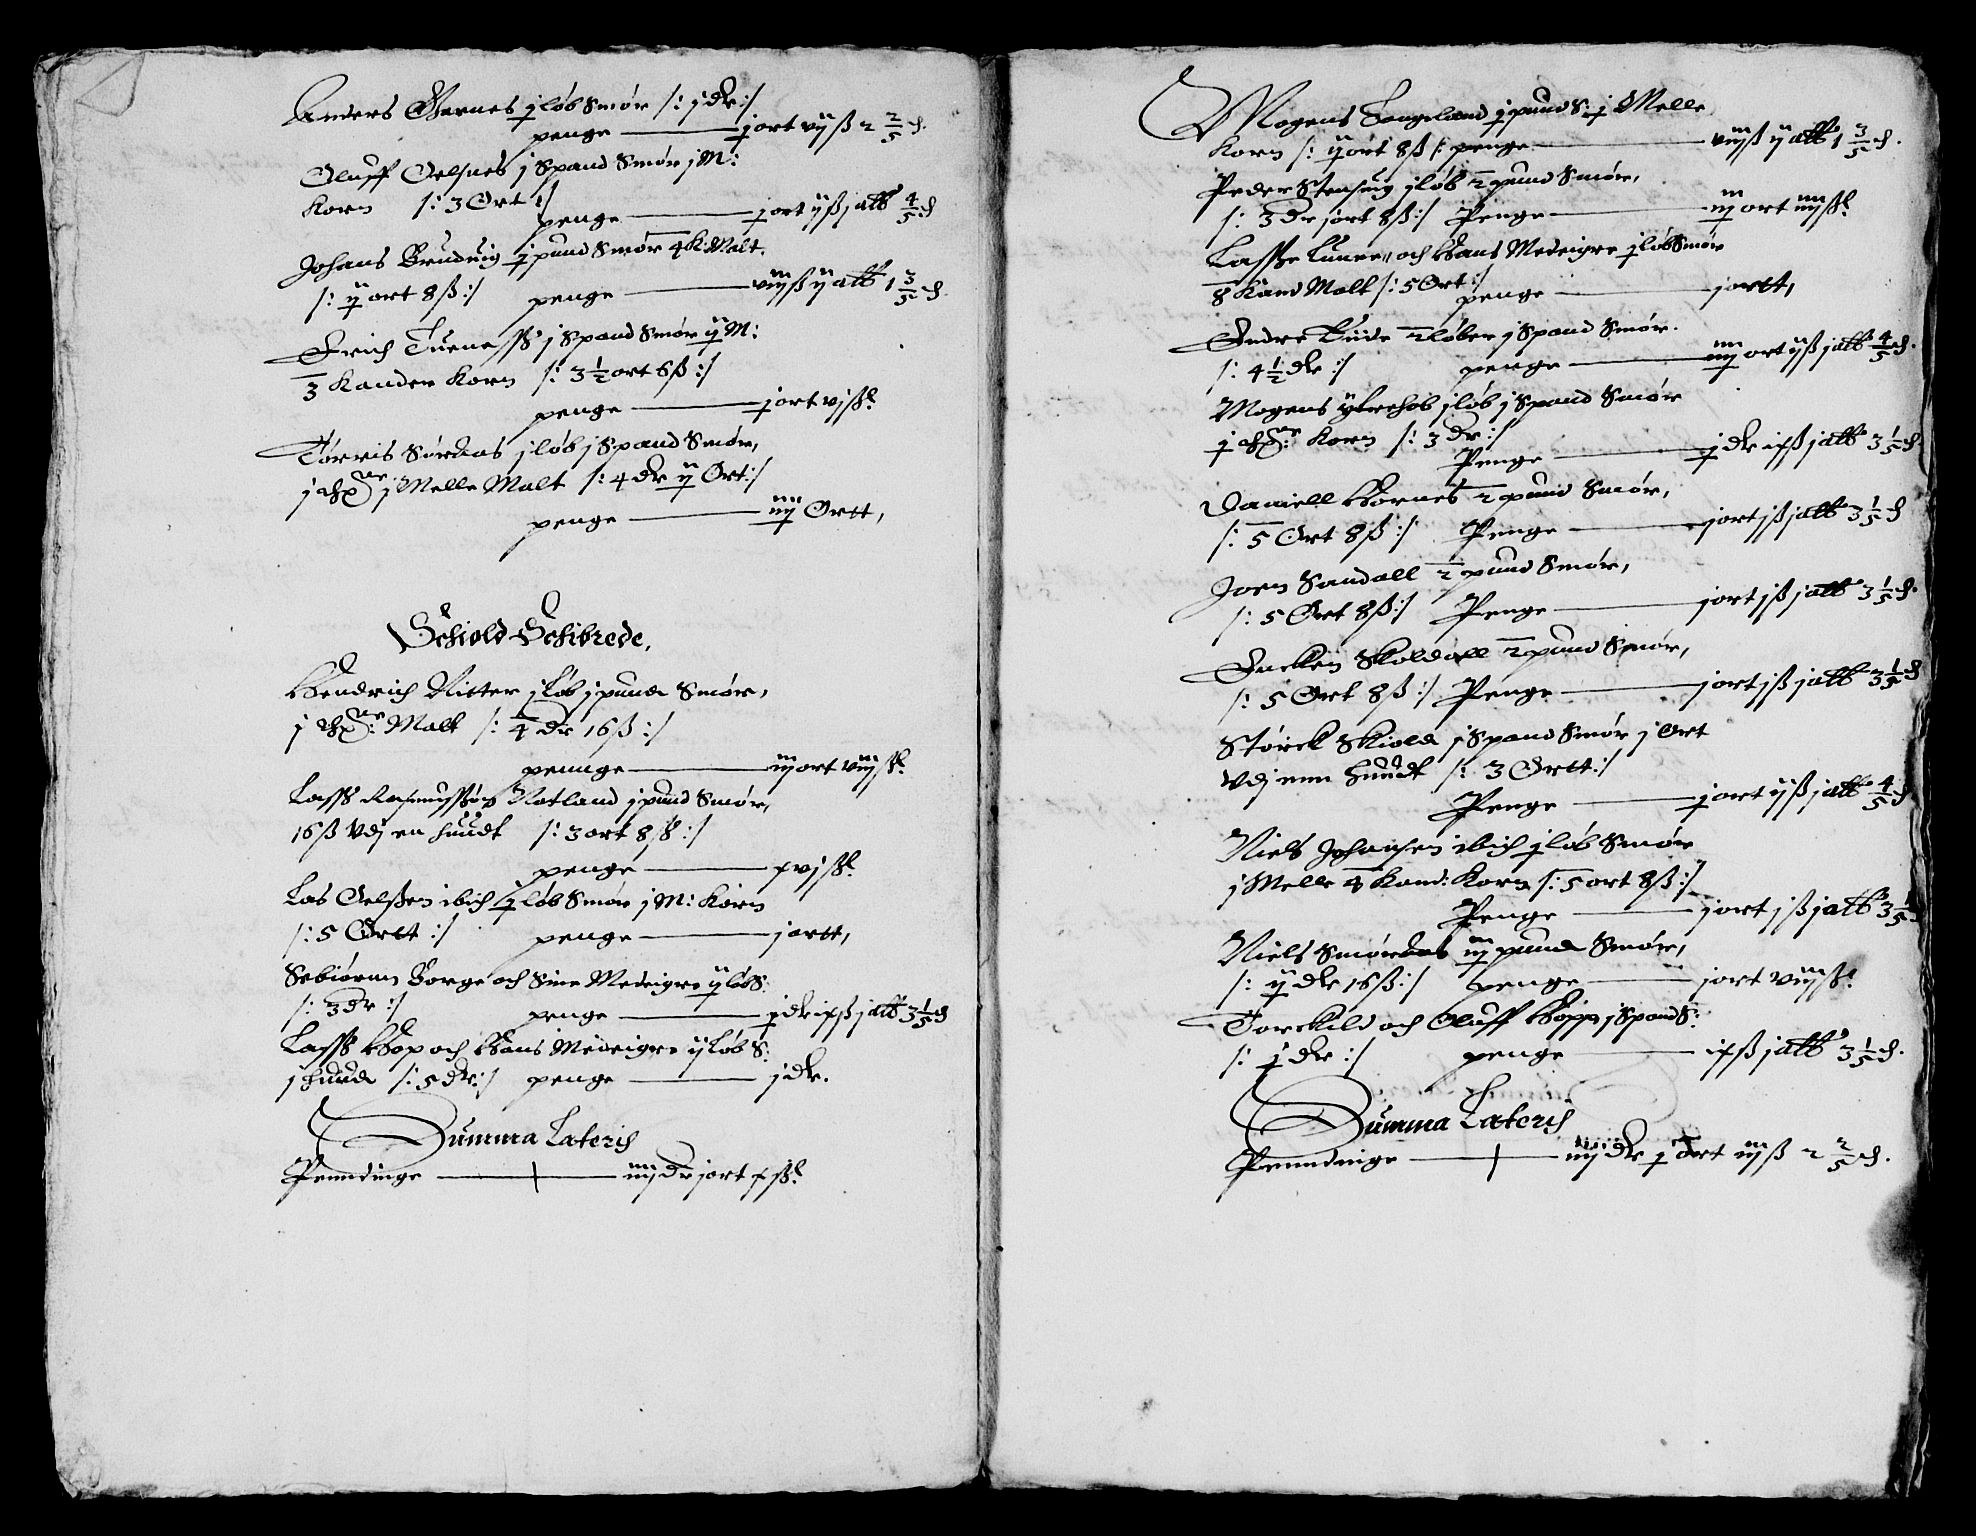 Anders Gernes j løb Smør /: j dlr :/
penge — j ort vijß 2 2/5 ₰.
Oluff Oelsnes j Spand Smør j M:
Korn /: 3 Ort :/
penge — j ort ijß j alb 4/5 ₰
Johans Brudvig j pund Smør 4 K: Malt.
/: ij ort 8 ß :/ penge — viijß ij alb 1 3/5 ₰.
Erich Tuenes j Spand Smør ij M:
3 Kander Korn /: 3 1/2 ort 6 ß :/
penge — j ort vjß.
Tørris Sørdas j løb j Spand Smør,
j Melle Malt /: 4 dlr ij Ort :/
penge — iiij Ortt,
Schiold Schibrede.
Hendrich Ritter j løb j pund Smør,
Malt /: 4 dlr 16 ß :/
pennge — iij ort viijß.
Lasse Rasmussøn Natland j pund Smør,
16 ß vdj en huudt /: 3 ort 8 ß :/
penge — xvjß.
Las Oelsen ibid j løb Smør j M: Korn
/: 5 Ortt :/ penge — j ortt,
Sebiørnn Borge och Sine Medeigre ij løb S:
/: 3 dlr :/ penge — j dlr ixß j alb 3 1/5 ₰
Lasse Hop och Hans Medeigre ij løb S:
j huud /: 5 dlr :/ penge — j dlr.
Summa Lateris
Penndinge — iiij dlr j ort xß.
Mogens Songeland j pund S: j Melle
Korn /: ij ort 8 ß /: penge — viijß ij alb 1 3/5 ₰.
Peder Stensvig j løb 2 pund Smør,
/: 3 dlr j ort 8 ß :/ Penge — iij ort iiijß.
Lasse Lunen och Hans Medeigre j løb Smør
8 Kand Malt /: 5 Ort :/
penge — j ortt,
Endre Tuide 2 løber j Spand Smør.
/: 4 1/2 dlr :/ penge — iiij ort ijß j alb 4/5 ₰.
Mogens ytrehob j løb j Spand Smør
Korn /: 3 dlr :/
Penge — j dlr ixß j alb 3 1/5 ₰
Daniell Hornes 2 pund Smør,
/: 5 Ort 8 ß :/ Penge — j ort jß j alb 3 1/5 ₰
Jorn Sandall 2 pund Smør,
/: 5 Ort 8 ß :/ Penge — j ort jß j alb 3 1/5 ₰.
Encken Skoldall 2 pund Smør,
/: 5 Ort 8 ß :/ Penge — j ort jß j alb 3 1/5 ₰
Størck Skiold j Spand Smør j Ort
vdj enn huudt /: 3 Ortt :/
Penge — j ort ijß j alb 4/5 ₰
Niels Johansen ibid j løb Smør
j Melle 4 Kand: Korn /: 5 ort 8 ß :/
Penge — j ort jß j alb 3 1/5
Niels Smørdas iij pund Smør,
/: ij dlr 16 ß :/ penge — j ort viijß.
Torckild och Oluff Hopp j Spand S:
/: j dlr :/ penge — ixß j alb 3 1/5 ₰.
Summa Lateris
Penndinge — dlr j ort iijß 2 2/5 ₰.